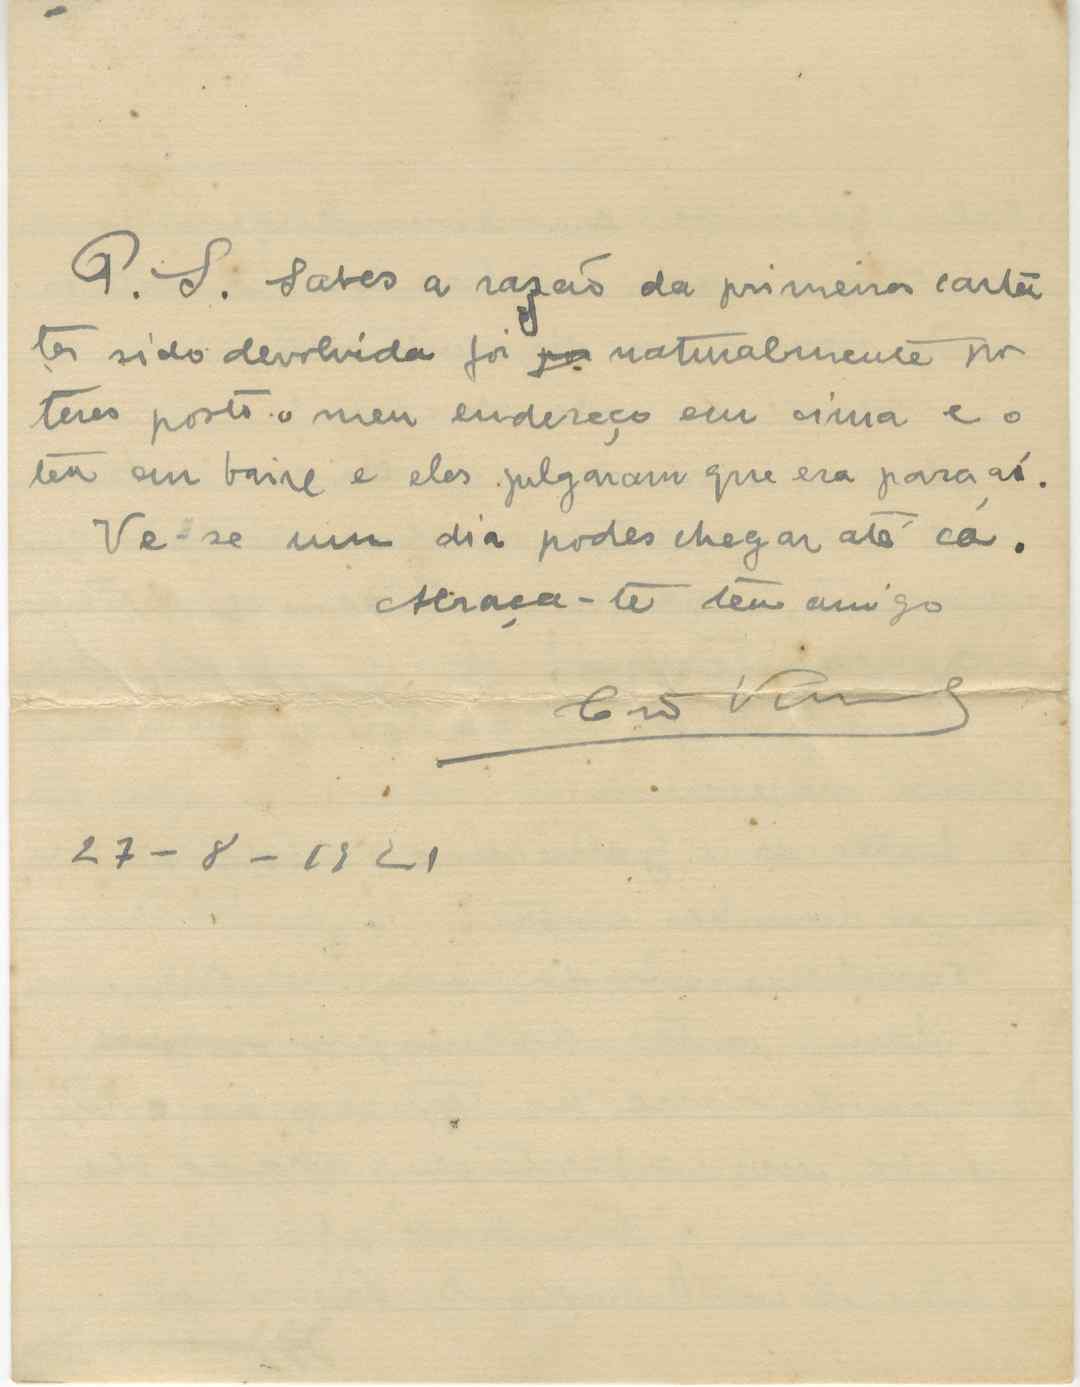 P. S. Sabes a razão da primeira carta
ter sido devolvida foi naturalmente por
teres posto o meu endereço em cima e o
teu em baixo e eles julgaram que era para aí.
Ve-se um dia podes chegar até cá.
Abraça-te teu amigo
27-8-1921